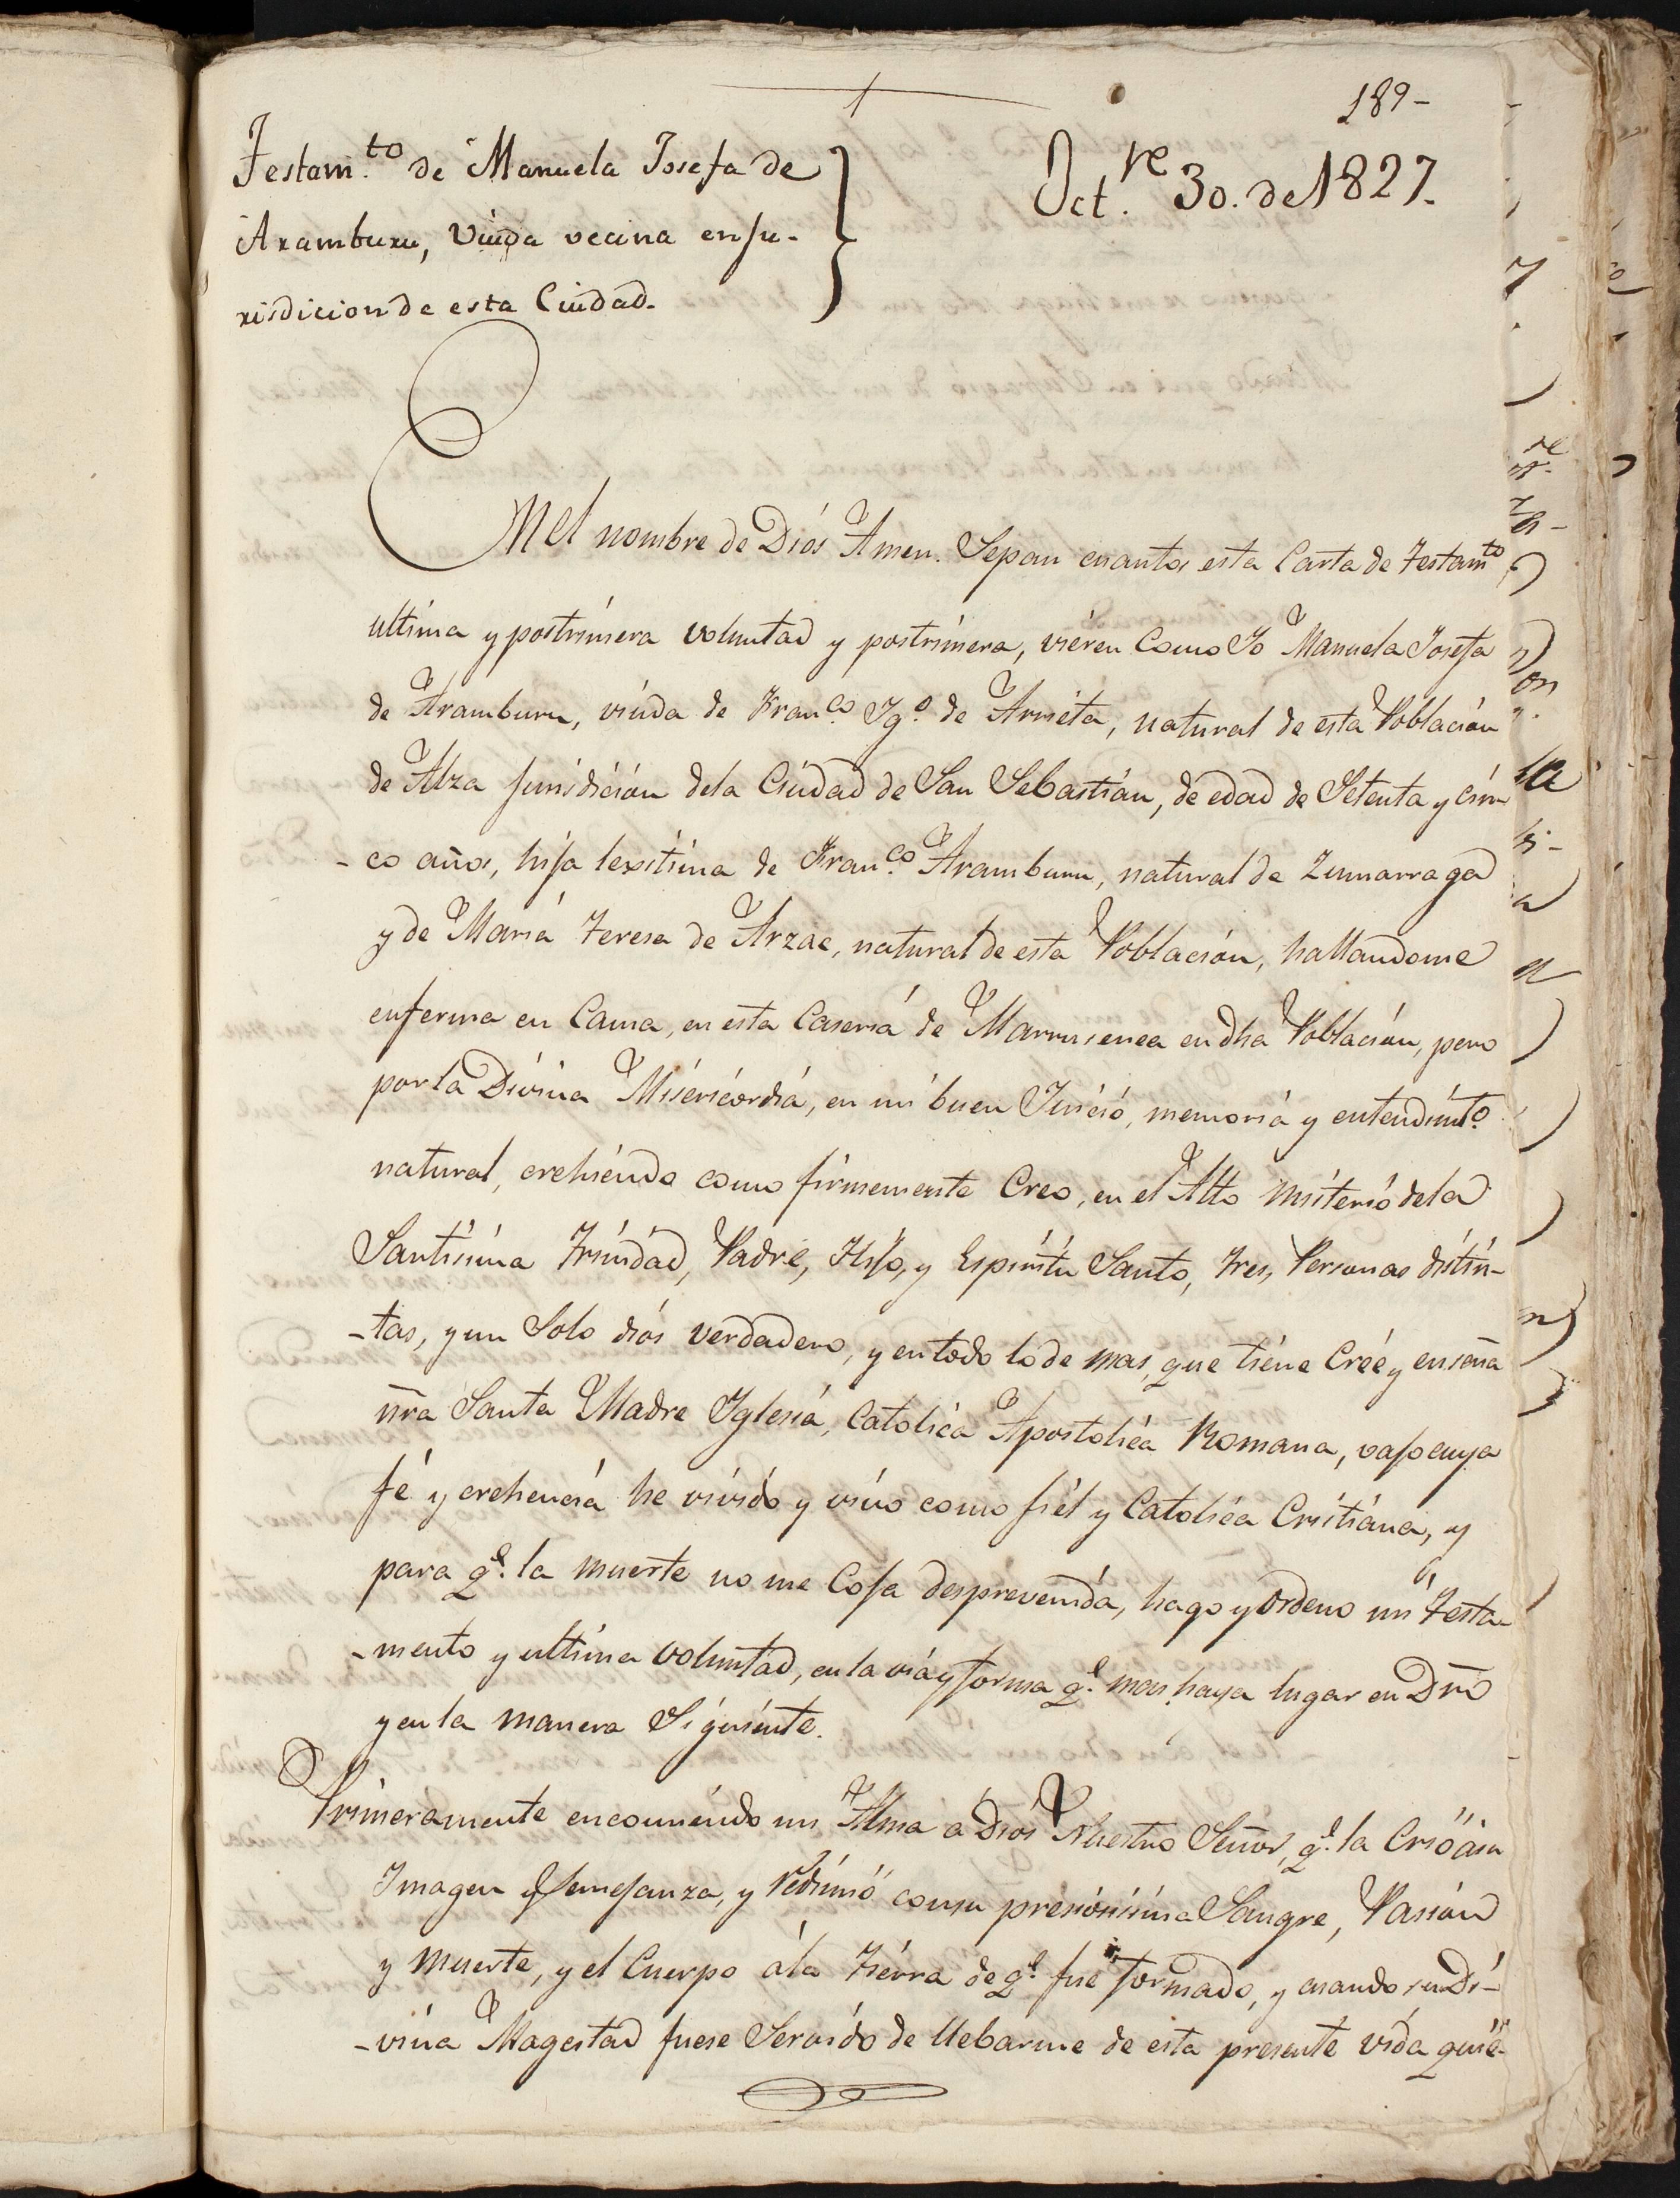 189-
Testam.to de Manuela Josefa de
Aramburu, Viuda vecina en ju-
risdicion de esta Ciudad.
Oct.re 30. de 1827.
En el nombre de Diós Amen. Sepan cuantos esta Carta de Testamto
ultima y postrimera voluntad y postrimera, viéren Como Yo Manuela Josefa
de Aramburu, viuda de Fran.co Yg.o de Arrieta, natural de esta Poblacion
de Alza Jurisdición dela Ciudad de San Sebastián, de edad de Setenta y cin-
-co años, hija lexitima de Fran.co Aramburu, natural de Zumarraga
y de Maria Teresa de Arzac, natural de esta Población, hallandome
enferma en Cama, en esta Caseria de en dha Población, pero
por la Divina Miséricordiá, en mi buen Juició, memoria y entendimto.
natural, crehiéndo como firmemente Creo, en el Alto misterió dela
Santisima Trinidad, Padre, Hijo, y Espiritu Santo, tres, Personas distin-
-tas, y un Solo diós verdadero, y en todo lo de mas, que tiéne Créé y enseña
nr̃a Santa Madre Yglesiá, Catolica Apostolica Romana, vajo cuya
fé y crehenciá he vivido y vivo como fiél y Catolica Cristiána, y
para q.e la muerte no me Coja desprevenida, hago y Ordeno mi Testa-
-mento y ultima voluntad, en la viá y forma q.e mas haya lugar en Dr̃o
y en la manera Siguiénte.
Primeramente encomiéndo mi Alma á Diós Nuestro Señor, q.e la Crió á su
Imagen y Semejanza, y redimió con su presiosisima Sangre, Pasión
y Muerte, y el Cuerpo á la Tiérra de q.e fue formado, y cuando su Di-
-vina Magestad fuese Servido de llebarme de esta presente vida quie-